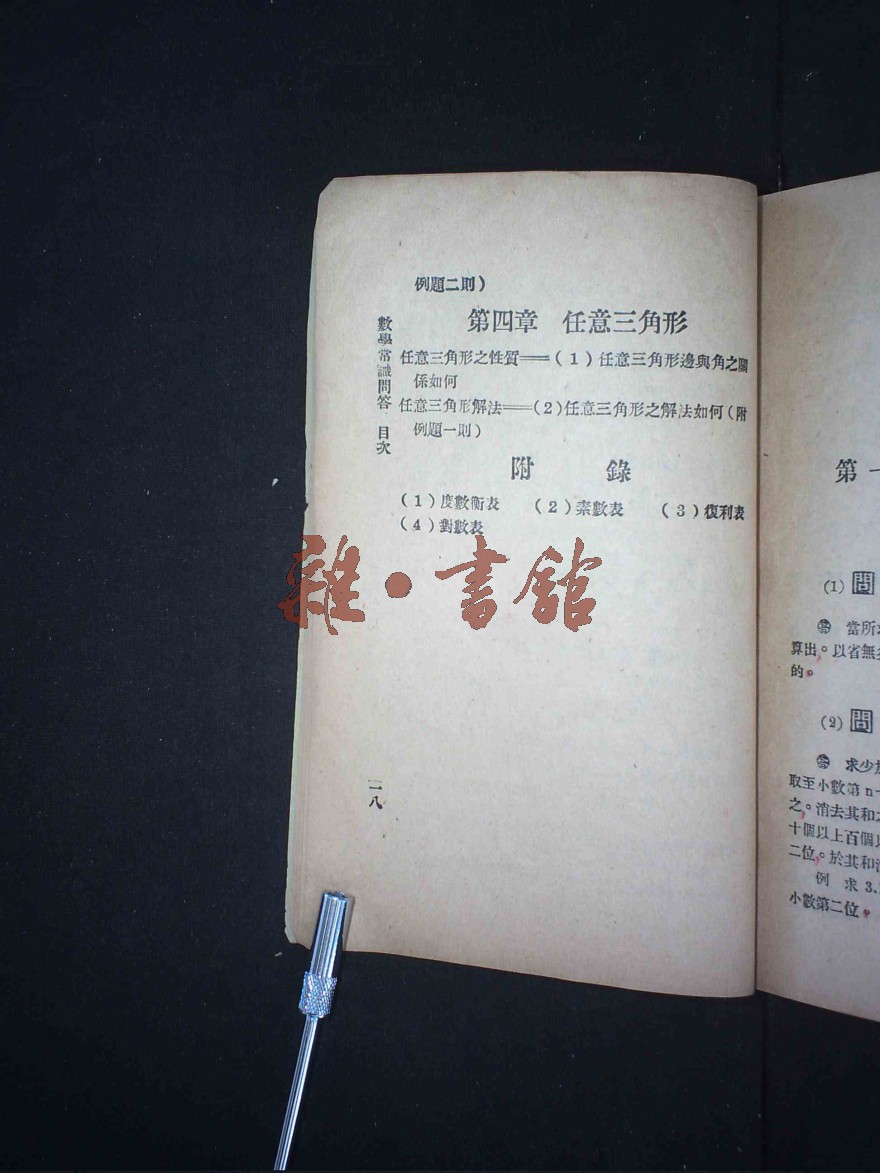 例題二則）
第四章　任意三角形
任意三角形之性質══（1）任意三角形邊與角之關
係如何
任意三角形解法══（2）任意三角形之解法如何（附
例題一則）
附　錄
（1）度數衡表　（2）素數表　（3）復利表
（4）對數表
數學常識問答　目次
二八
雜·書館
第一
(1) 問
答　當所
算出。以省無
的。
(2) 問
答　求少
取至小數第n
之。消去其和
十個以上百個
二位。於其和
例　求 3.
小數第二位。